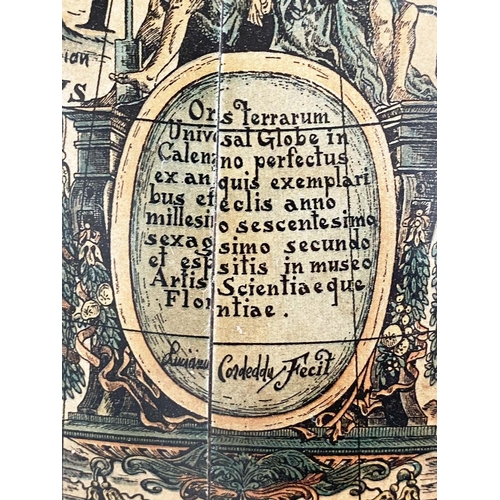 ion
VS
Or s Terrarum
Unive sal Globe in
Calen no perfectus
ex an quis exemplari
bus et eclis anno
millesi o sescentesimo
sexag simo secundo
et esp sitis in museo
Artis Scientiaeque
Flor ntiae.
Cordeddu Fecit